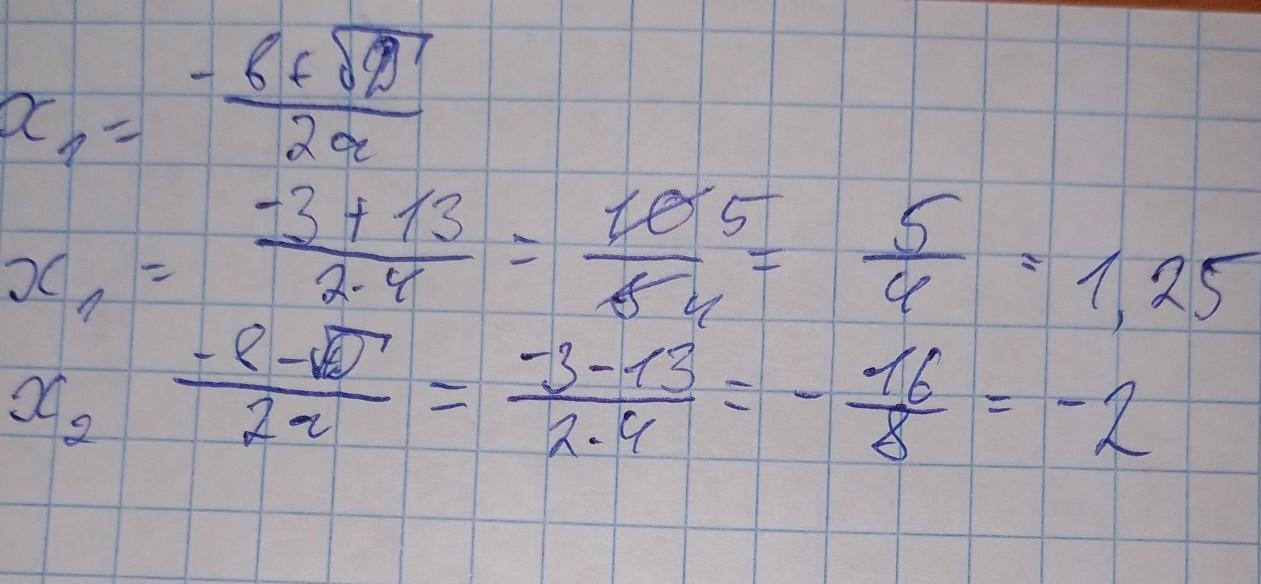 x₁ = -b+√D / 2a
x₁ = -3+13 / 2·4 = 10 5 / 8 4 = 5/4 = 1,25
x₂ -b-√D / 2a = -3-13 / 2·4 = -16/8 = -2